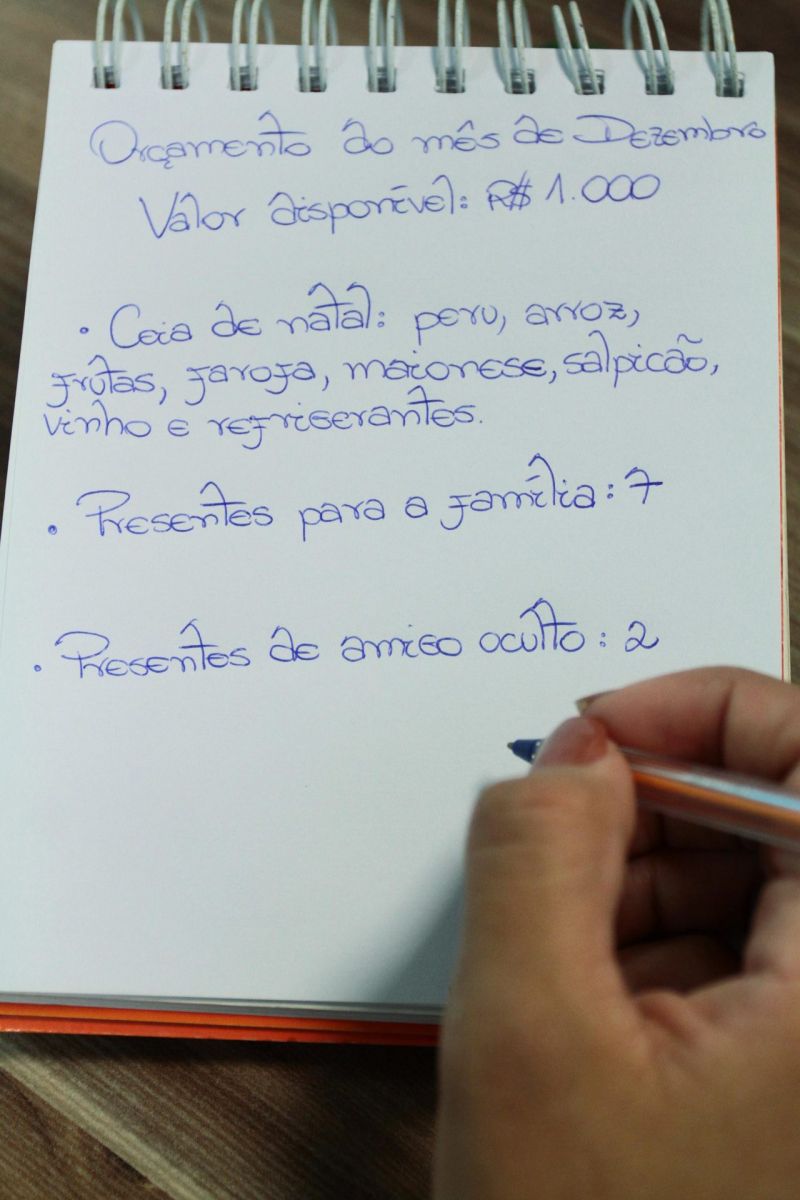 Orçamento do mês de Dezembro
Valor disponível: R$ 1.000
• Ceia de natal: peru, arroz,
frutas, farofa, maionese, salpicão,
vinho e refrigerantes.
• Presentes para a família: 7
• Presentes de amigo oculto: 2